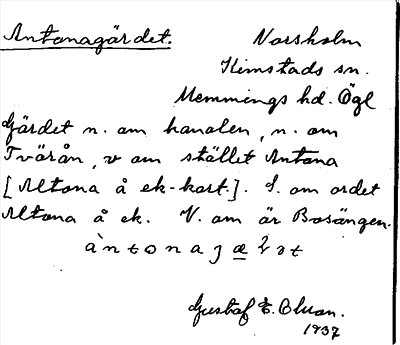 Antonagärdet. Norsholm
Kimstads sn.
Memmings hd. Ögl
Gärdet n. om kanalen, n. om
Tvärån, v om stället Antona
[Altona å ek-kart.]. S. om ordet
Altona å ek. V. om är Bosängen.
àntonaJ
Gustaf E.
1937